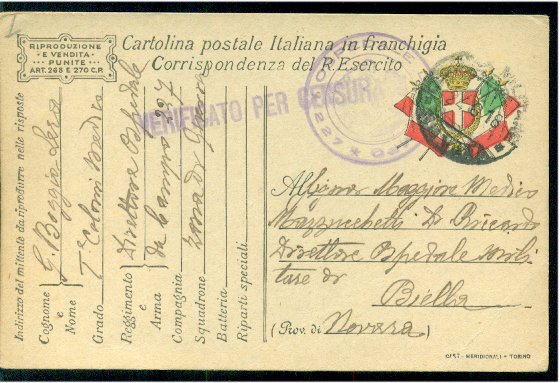 RIPRODUZIONE
E VENDITA
PUNITE
ART. 268 E 270 C.P.
Cartolina postale Italiana in franchigia
Corrispondenza del R. Esercito
VERIFICATO PER CENSURA
227
Indirizzo del mittente da riprodurre nelle risposte
Cognome e Nome
G. Boggia
Grado
T.e Colon. Medico
Reggimento e Arma
Direttore Ospedale
da Campo 227
Compagnia
Zona di Guerra
Squadrone
Batteria
Riparti speciali
Al Signor Maggiore Medico
Mazzucchetti Dr Riccardo
Direttore Ospedale Mili
tare di
Biella
(Prov. di Novara)
CART. MERIDIONALI - TORINO